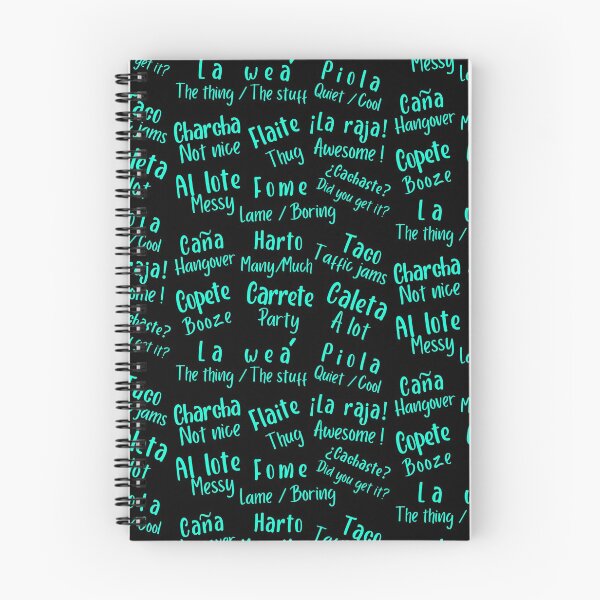 get it?
Messy
Lame
La weá
The thing / The stuff
Piola
Quiet / Cool
Caña
Hangover
Taco
jams
Charcha
Not nice
Flaite
Thug
¡La raja!
Awesome !
Copete
Booze
Caleta
A lot
Al lote
Messy
Fome
Lame / Boring
¿Cachaste?
Did you get it?
La
The thing /
Piola
/ Cool
Caña
Hangover
Harto
Many/Much
Taco
Taffic jams
Charcha
Not nice
raja!
Awesome !
Copete
Booze
Carrete
Party
Caleta
A lot
Al lote
Messy
Cachaste?
get it?
La weá
The thing / The stuff
Piola
Quiet / Cool
Caña
Hangover
Taco
jams
Charcha
Not nice
Flaite
Thug
¡La raja!
Awesome !
Copete
Booze
Caleta
lot
Al lote
Messy
Fome
Lame / Boring
¿Cachaste?
Did you get it?
La
The thing /
la
/ Cool
Caña
Hangover
Harto
Taco
Taffic jams